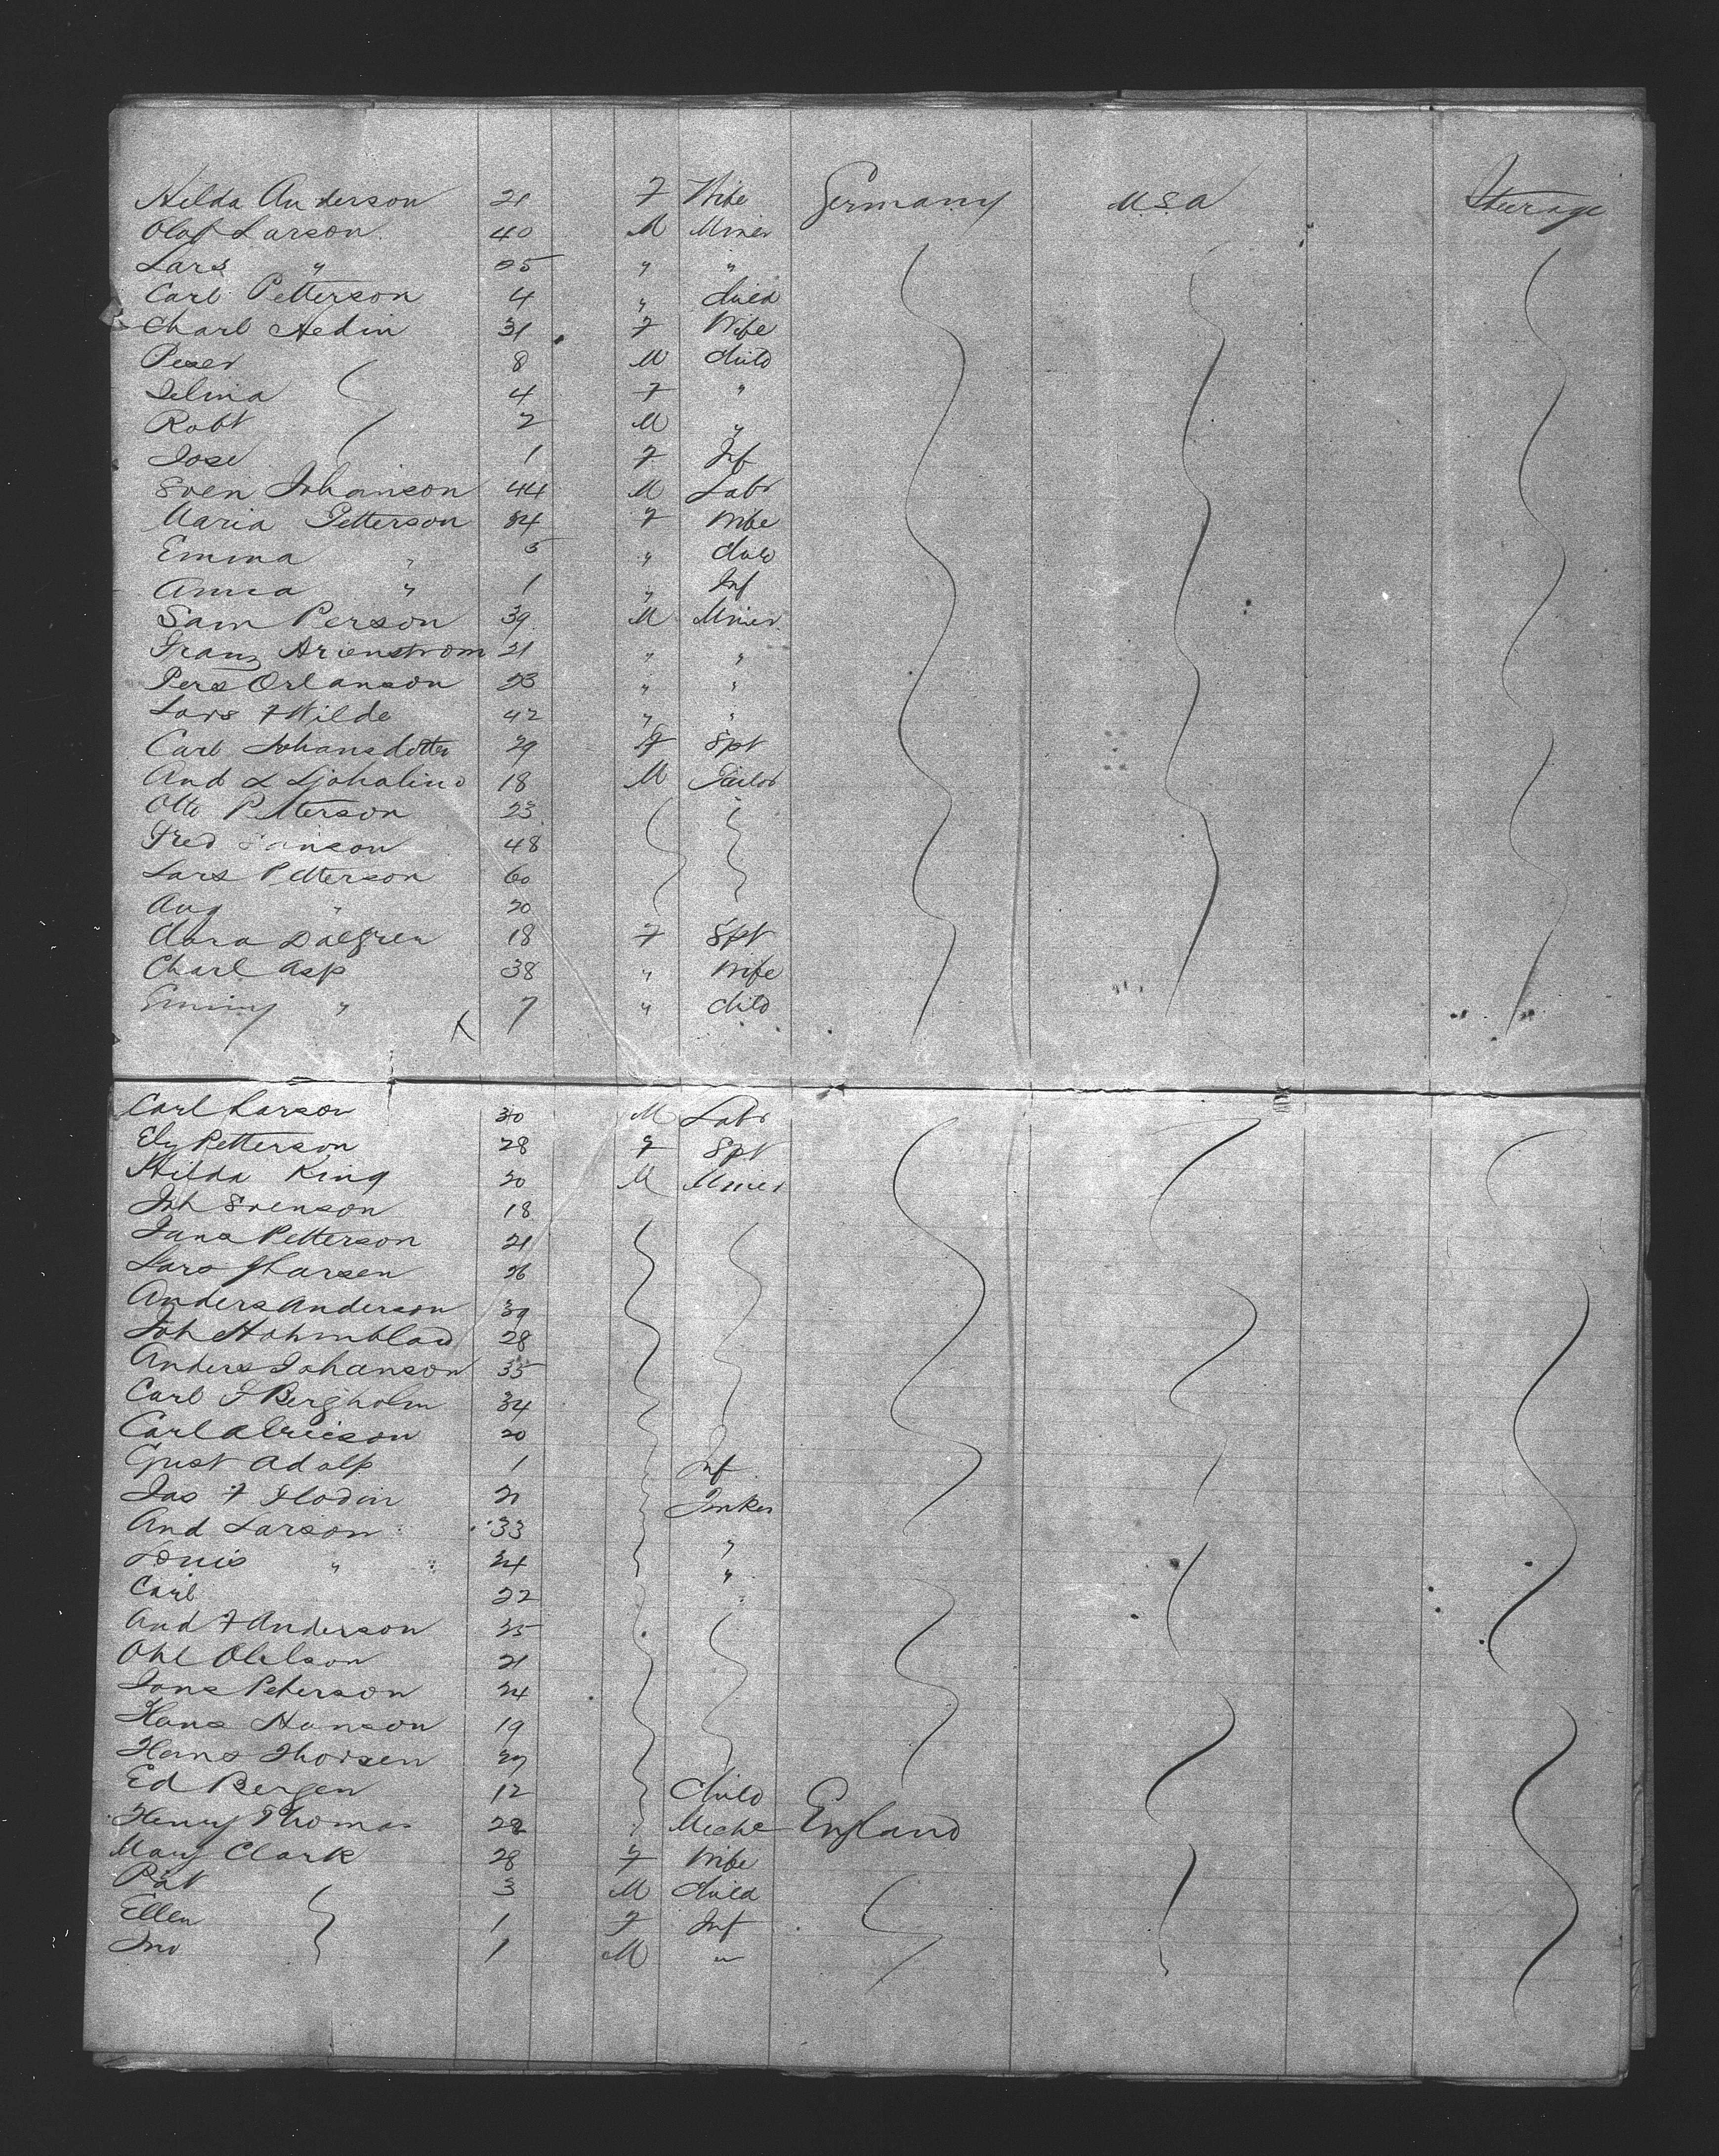 Hilda Anderson 21 F Wife Germany U.S.A Steerage
Olof Larson 40 M Miner
Lars " 25 " "
Carl Petterson 4 " Child
Charl Hedin 31 F Wife
Peter 8 M Child
Selma 4 F "
Robt 2 M "
Jose 1 F Inf
Sven Johanson 44 M Labr
Maria Petterson 34 F Wife
Emma " 5 " Child
Anna " 1 " Inf
Sam Person 39 M Miner
Franz Arienstrom 21 " "
Pers Orlanson 23 " "
Lars F Wilde 42 " "
Carl Johansdotter 29 F Spt
And L 18 M Tailor
Otto Petterson 23 "
Fred 48
Lars Petterson 60
Aug " 20
Clara Dalgren 18 F Spt
Charl Asp 38 " Wife
Emmy " 7 " Child
Carl Larson 30 M Labr
Ely Petterson 28 F Spt
Hilda King 20 M Miner
Joh Svenson 18
Jans Petterson 21
Lars 26
Anders Anderson 39
Joh Hohmblad 28
Anders Johanson 35
Carl F Bergholm 34
Carl A Ericson 20
Gust Adolf 1 Inf
Jas F Flodin 21
And Larson 33 "
Louis " 24 "
Carl 22 "
And F Anderson 25
Ohl Ohlson 21
Jons Peterson 24
Hans Hanson 19
Hans Thorsen 27
Ed Bergen 12 Child
Henry Thomas 22 Mechc England
Mary Clark 28 F Wife
Pat 3 M Child
Ellen 1 F Inf
Jno 1 M "